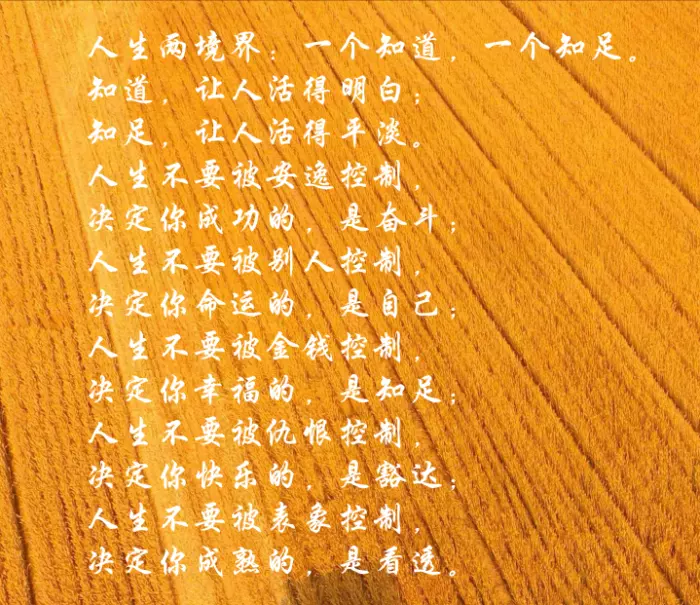 人生两境界：一个知道，一个知足。
知道，让人活得明白；
知足，让人活得平淡。
人生不要被安逸控制，
决定你成功的，是奋斗；
人生不要被别人控制，
决定你命运的，是自己；
人生不要被金钱控制，
决定你幸福的，是知足；
人生不要被仇恨控制，
决定你快乐的，是豁达；
人生不要被表象控制，
决定你成熟的，是看透。